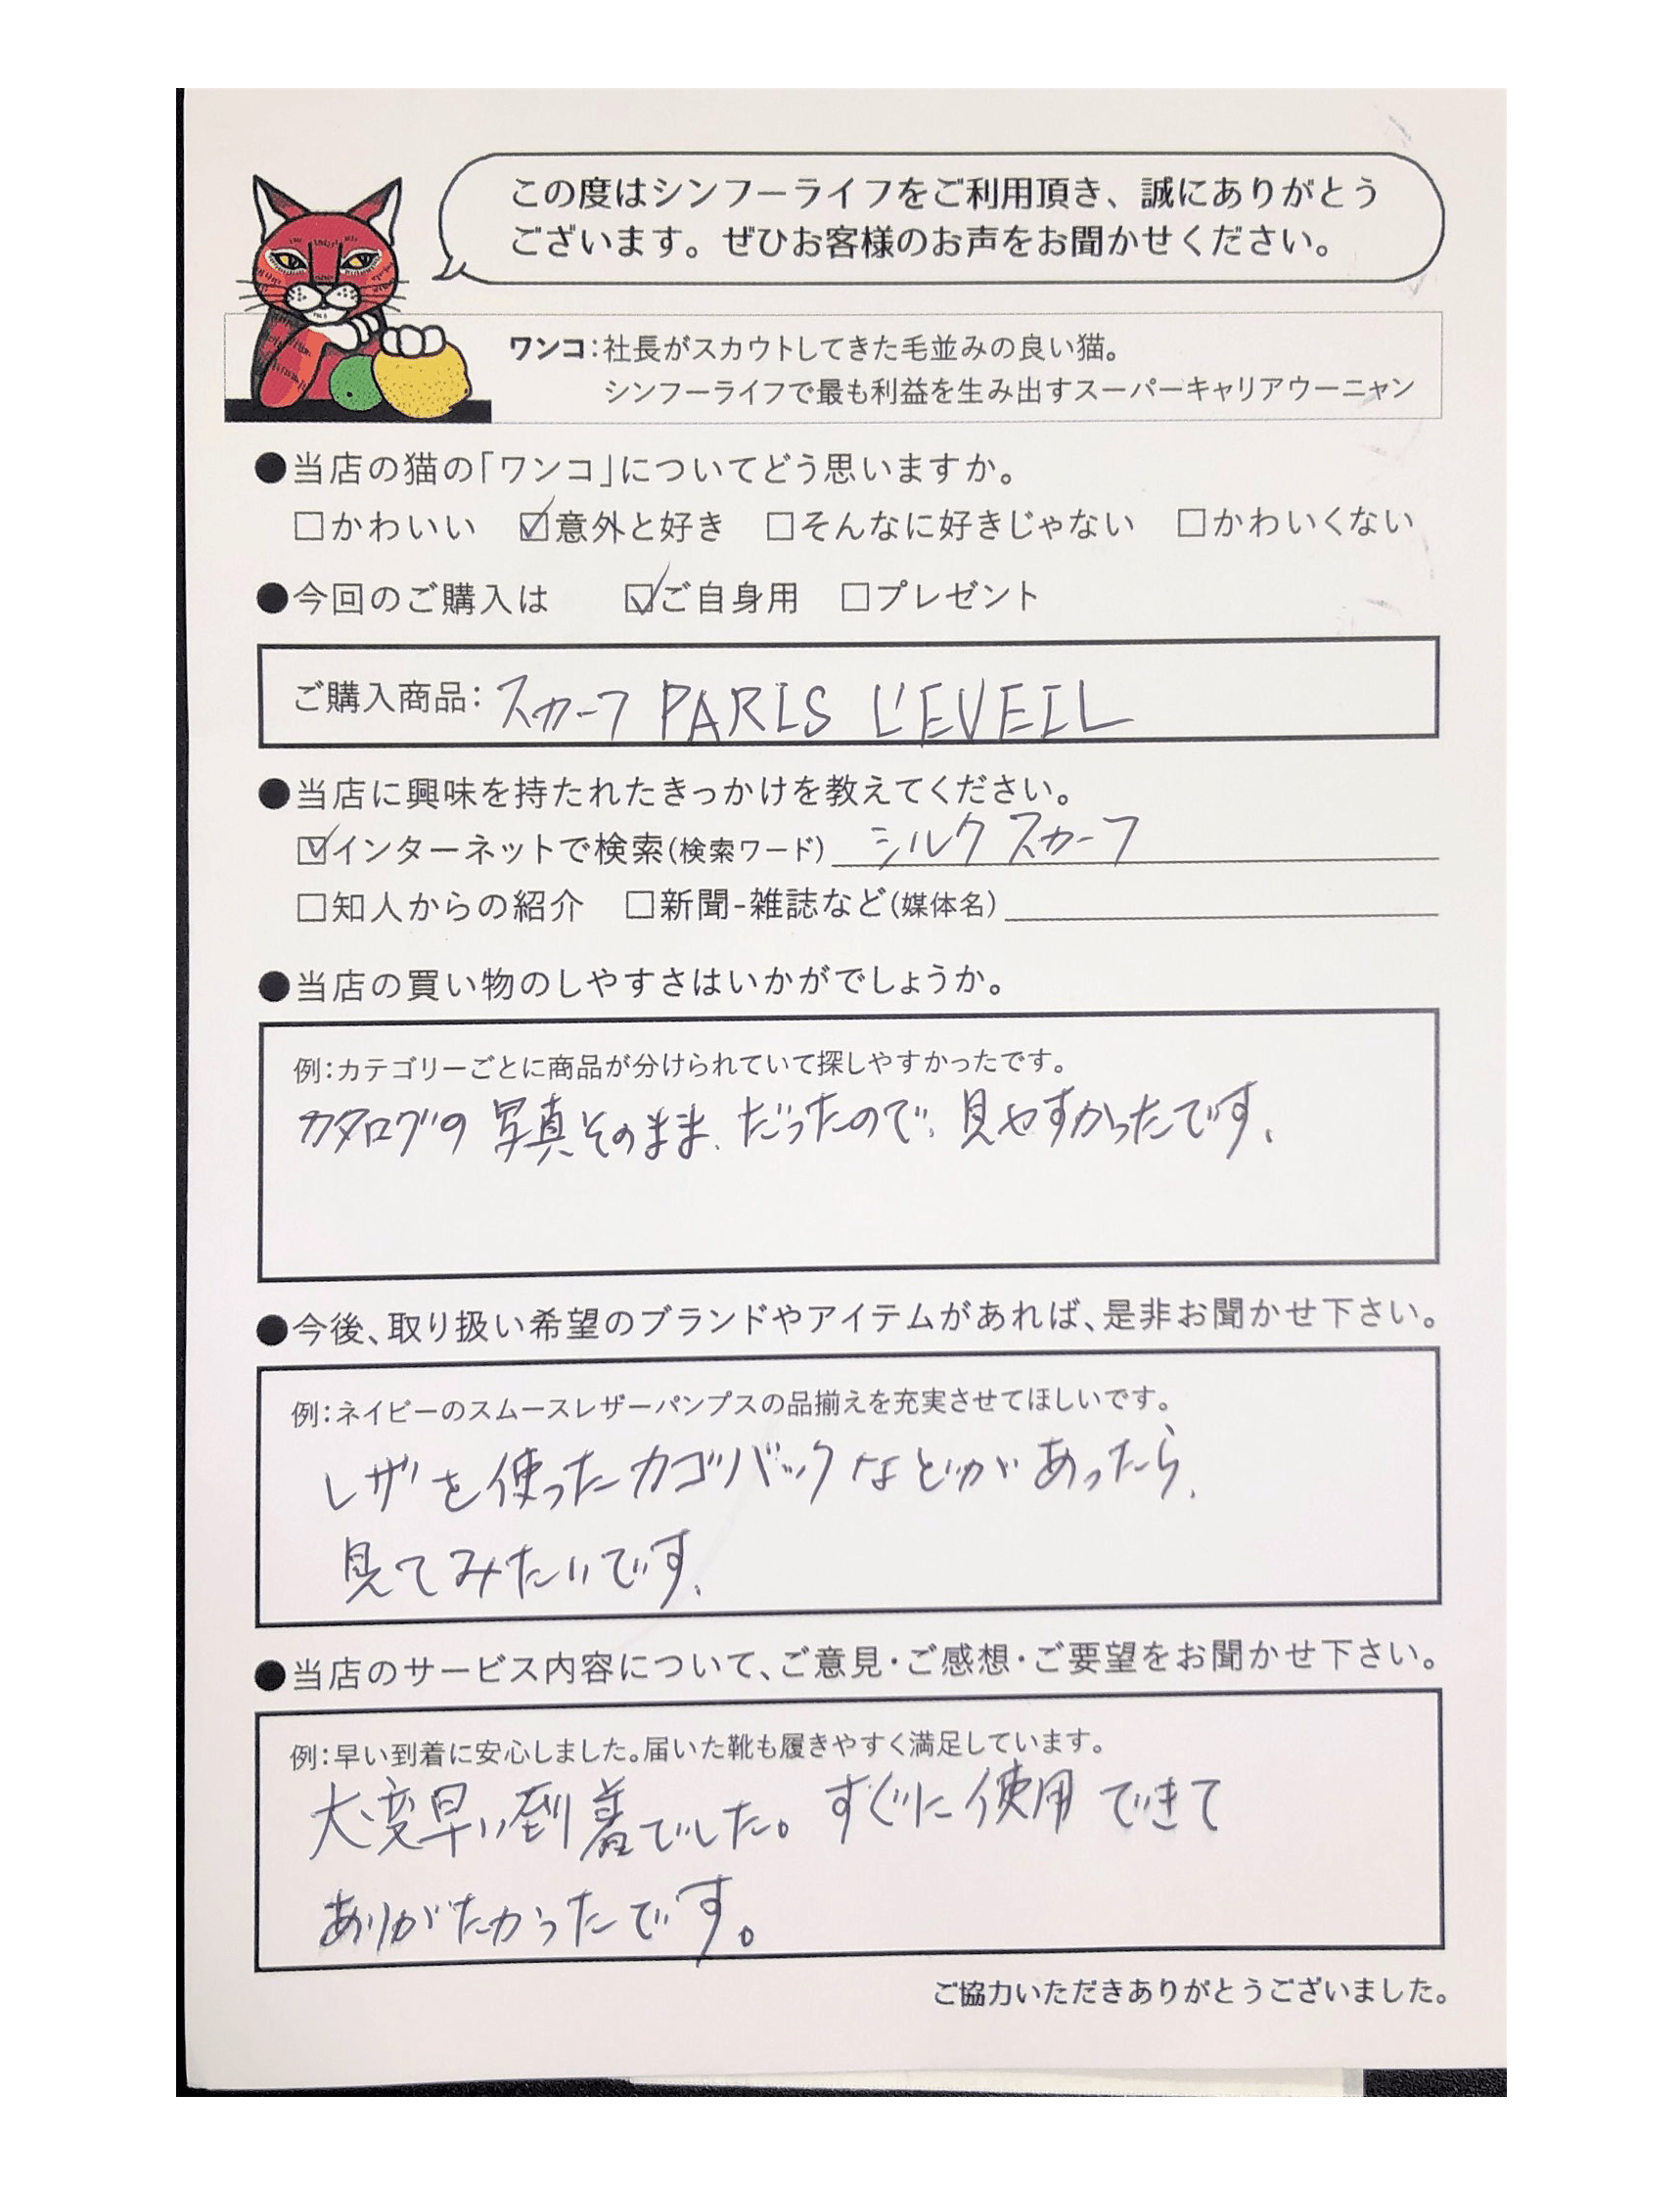 この度はシンフーライフをご利用頂き、誠にありがとう
ございます。ぜひお客様のお声をお聞かせください。
ワンコ：社長がスカウトしてきた毛並みの良い猫。
シンフーライフで最も利益を生み出すスーパーキャリアウーニャン
●当店の猫の「ワンコ」についてどう思いますか。
□かわいい ☑意外と好き □そんなに好きじゃない □かわいくない
●今回のご購入は ☑ご自身用 □プレゼント
ご購入商品：スカーフ PARIS L'EVEIL
●当店に興味を持たれたきっかけを教えてください。
☑インターネットで検索(検索ワード) シルク スカーフ
□知人からの紹介 □新聞-雑誌など(媒体名)
●当店の買い物のしやすさはいかがでしょうか。
例：カテゴリーごとに商品が分けられていて探しやすかったです。
カタログの写真そのまま、だったので、見やすかったです、
●今後、取り扱い希望のブランドやアイテムがあれば、是非お聞かせ下さい。
例：ネイビーのスムースレザーパンプスの品揃えを充実させてほしいです。
レザを使ったカゴバックなどがあったら、
見てみたいです、
●当店のサービス内容について、ご意見・ご感想・ご要望をお聞かせ下さい。
例：早い到着に安心しました。届いた靴も履きやすく満足しています。
大変早い到着でした。すぐに使用できて
ありがたかったです。
ご協力いただきありがとうございました。